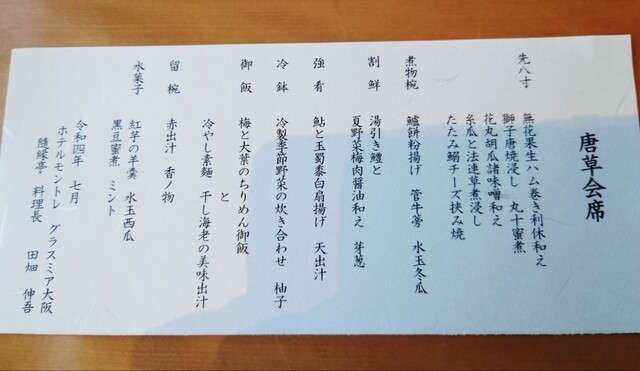 唐草会席
先八寸
無花果生ハム巻き利休和え
獅子唐焼浸し 丸十蜜煮
花丸胡瓜諸味噌和え
糸瓜と法連草煮浸し
たたみ鰯チーズ挟み焼
煮物椀
鱸餅粉揚げ 管牛蒡 水玉冬瓜
割鮮
湯引き鱧と
夏野菜梅肉醤油和え 芽葱
強肴
鮎と玉蜀黍白扇揚げ 天出汁
冷鉢
冷製季節野菜の炊き合わせ 柚子
御飯
梅と大葉のちりめん御飯
と
冷やし素麺 干し海老の美味出汁
留椀
赤出汁 香ノ物
水菓子
紅芋の羊羹 水玉西瓜
黒豆蜜煮 ミント
令和四年 七月
ホテルモントレ グラスミア大阪
隨縁亭 料理長 田畑 伸吾